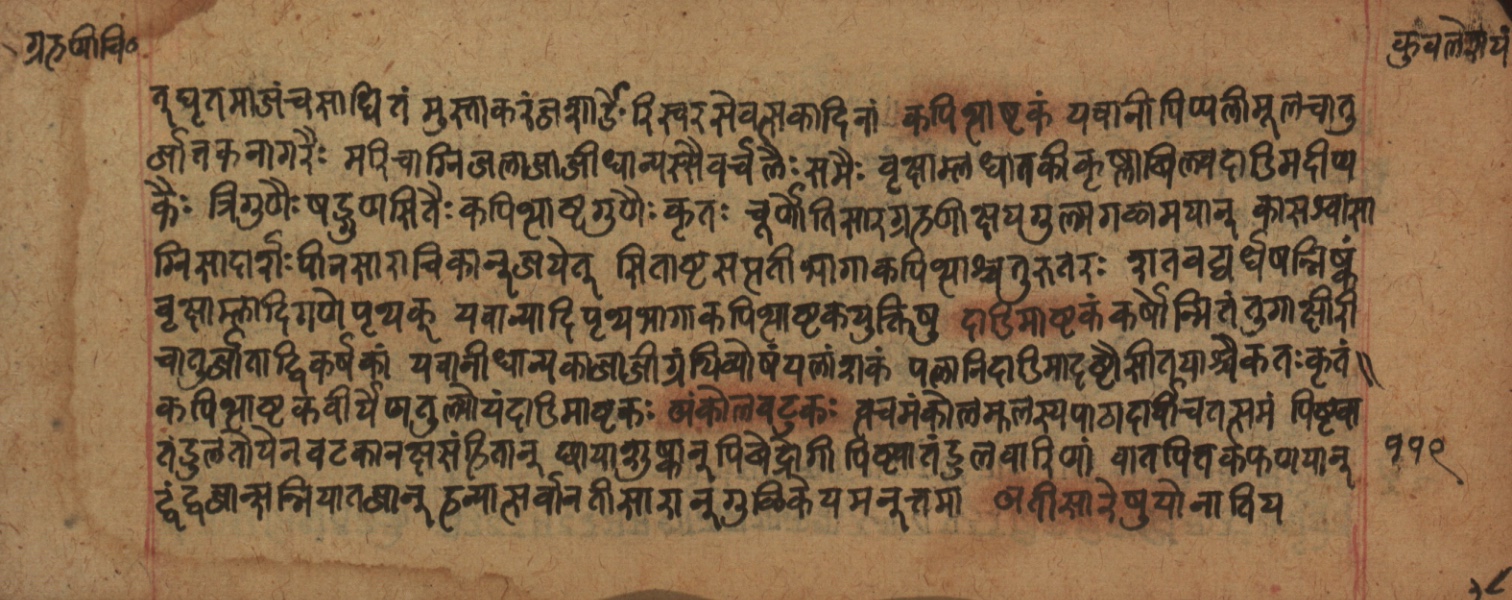 ग्रहणीचि॰
कुवलेशयं
त् घृतमाजंचसाधितं मुस्ताकरंज रिस्वरसेवत्सकादिनां कपित्थाष्टकं यवानीपिप्पलीमूलचातु
र्जातकनागरैः मरिचाग्निजलाजाजीधान्यसौवर्चलैः समैः वृक्षाम्लधातकीकृष्णाबिल्वदाडिमदीप्य
कैः त्रिगुणैः षड्गुणसितैः कपित्थाष्टगुणैः कृतः चूर्णोतिसारग्रहणीक्षयगुल्मगळामयान् कासश्वासा
ग्निसादार्शःपीनसारोचिकान्जयेत् सिताष्टसप्ततीभागाकपित्थाश्चतुरुतरः शतवद्वर्धषन्निष्कं
वृक्षाम्लादिगणे पृथक् यवान्यादिपृथभागाकपित्थाष्टकयुक्तिषु दाडिमाष्टकं कर्षोन्मितंतुगाक्षीरी
चातुर्जाताद्विकर्षकां यवानीधान्यकाजाजीग्रंथिव्योषंपलांशकं पलानिदाडिमादृष्टौसीतयाश्चैकतःकृतं॥
कपित्थाष्टकवीर्येणतुल्योयंदाडिमाष्टकः अंकोलवटुकः त्वचमंकोलमूलस्यपाठादार्वीचतत्समं पिष्ट्वा
तंडुलतोयेनवटकानक्षसंहितान् छायाशुष्कान्पिबेद्रोगीपिष्ट्वातंडुलवारिणां वातपित्तकफणयान्
द्वंद्वजान्सन्निपातजान् हन्यात्सर्वानतीसारान्गुळिकेयमनूत्तमा अतीसारेषुयोनातिय
११९